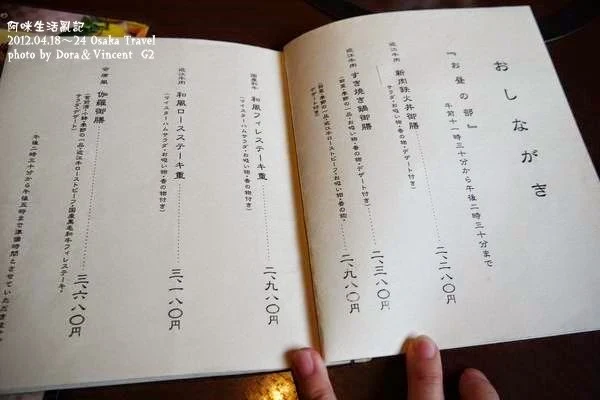 阿咪生活亂記
2012.04.18～24 Osaka Travel
photo by Dora & Vincent G2
おしながき
『お昼の部』
午前十一時三十分から午後二時三十分まで
近江牛肉
新肉鉄火丼御膳
二、二八〇円
(サラダ・お吸い物・香の物・デザート付き)
近江牛肉
すき焼き鍋御膳
二、三八〇円
(前菜・季節の一品・お吸い物・香の物・デザート付き)
二、九八〇円
(前菜・季節の一品・近江牛ローストビーフ・お吸い物・香の物・
デザート付き)
国産和牛
和風フィレステーキ重
二、九八〇円
(マイスターハムサラダ・お吸い物・香の物付き)
近江牛肉
和風ロースステーキ重
三、一八〇円
(マイスターハムサラダ・お吸い物・香の物付き)
安原風
伽羅御膳
三、六八〇円
季節の一品・近江牛ローストビーフ・国産黒毛和牛フィレステーキ・
サラダ・デザート)
午後二時三十分から午後五時まで準備時間とさせていただきます